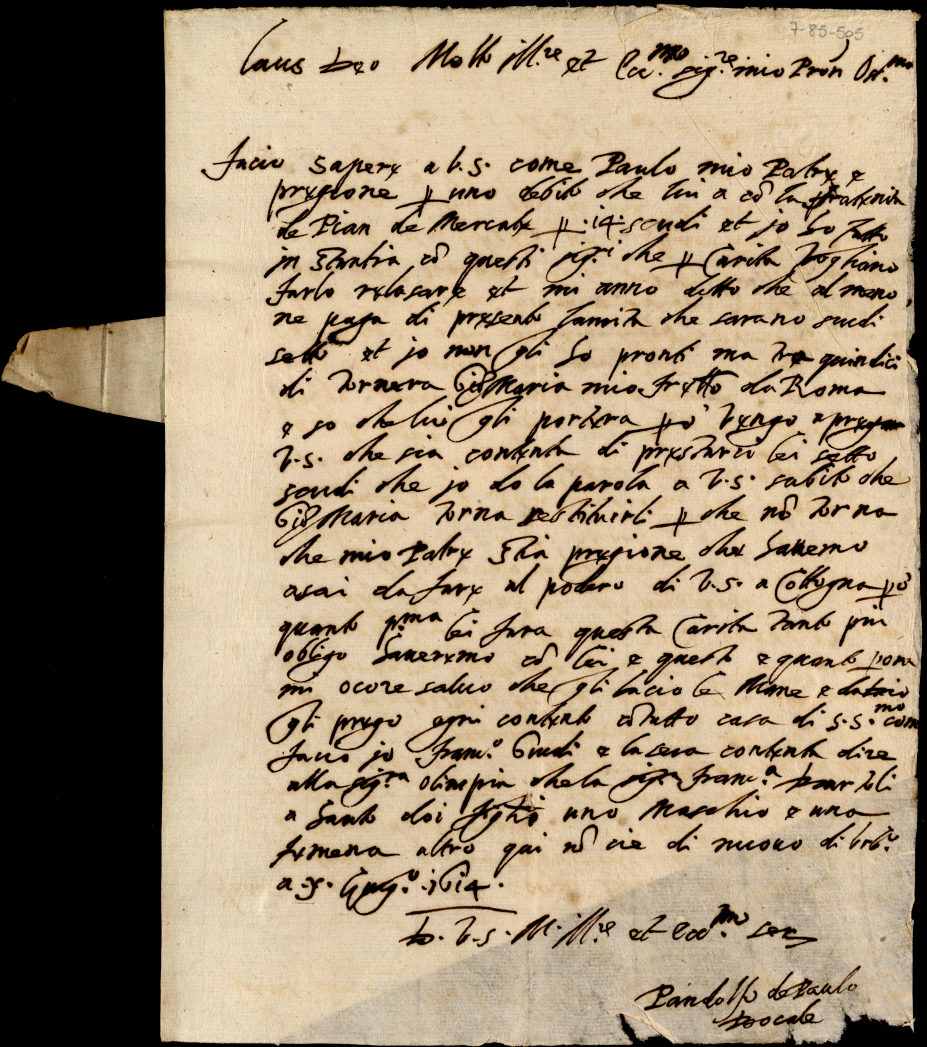 7-85-505
Laus Deo Molto Ill.re et Ecc.mo sig.re mio Pron Oss.mo
Facio sapere a V.S. come Paulo mio Patre e
presione p uno debito che lui a cō la fratenita
de Pian de Mercate p .14. scudi et jo ho fatto
in stantia cō questi sig.ri che p Carita vogliano
farlo relasare et mi anno ditto che al meno
ne paga di presente la mita che sarano scudi
sette et jo non gli ho pronti ma tra quindici
di tornera Giō Maria mio fretto da Roma
e so che lui gli portera pō vengo a pregar
V.S. che sia contenta di prestarci lei sette
scudi che jo do la parola a V.S. subito che
Giō Maria torna restituirli p che nō torna
che mio Patre stia presione che hauemo
asai da fare al podero di V.S. a Collogna pō
quanto p.ma lei fara questa Carita tanto piu
obligo haueremo cō lei e questo e quanto pora
mi ocore saluo che gli bacio le Mane e
gli prego ogni contento cō tutto casa di S.S.mo come
facio jo Franc.o Giudi e la sera contenta dire
alla sig.ra Olimpia che la sig.ra Franc.a
a hauto doi figli uno Maschio e una
femena altro qui nō cie di nuouo di Urb.o
a .5. Giug.o .1614.
D. V.S. M. Ill.re et Ecc.mo ser
Pandolfo de Paulo